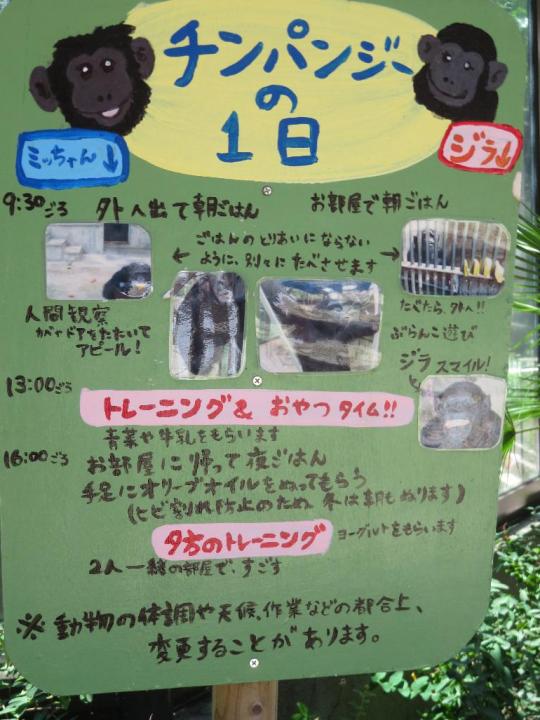 チンパンジー
の
1日
ミッちゃん↓
ジラ↓
9:30ごろ 外へ出て朝ごはん
お部屋で朝ごはん
← ごはんのとりあいにならない →
ように、別々にたべさせます
人間観察
ガイドアをたたいて
アピール!
たべたら、外へ!!
ぶらんこ遊び
ジラスマイル!
13:00ごろ
トレーニング& おやつタイム!!
青菜や牛乳をもらいます
16:00ごろ お部屋に帰って夜ごはん
手足にオリーブオイルをぬってもらう
(ヒビ割れ防止のため、冬は朝もぬります)
夕方のトレーニング ヨーグルトをもらいます
2人一緒の部屋で、すごす
※動物の体調や天候、作業などの都合上、
変更することがあります。